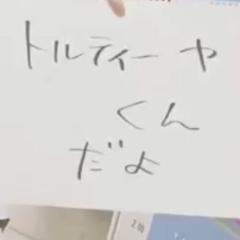 トルティーヤ
くん
だよ